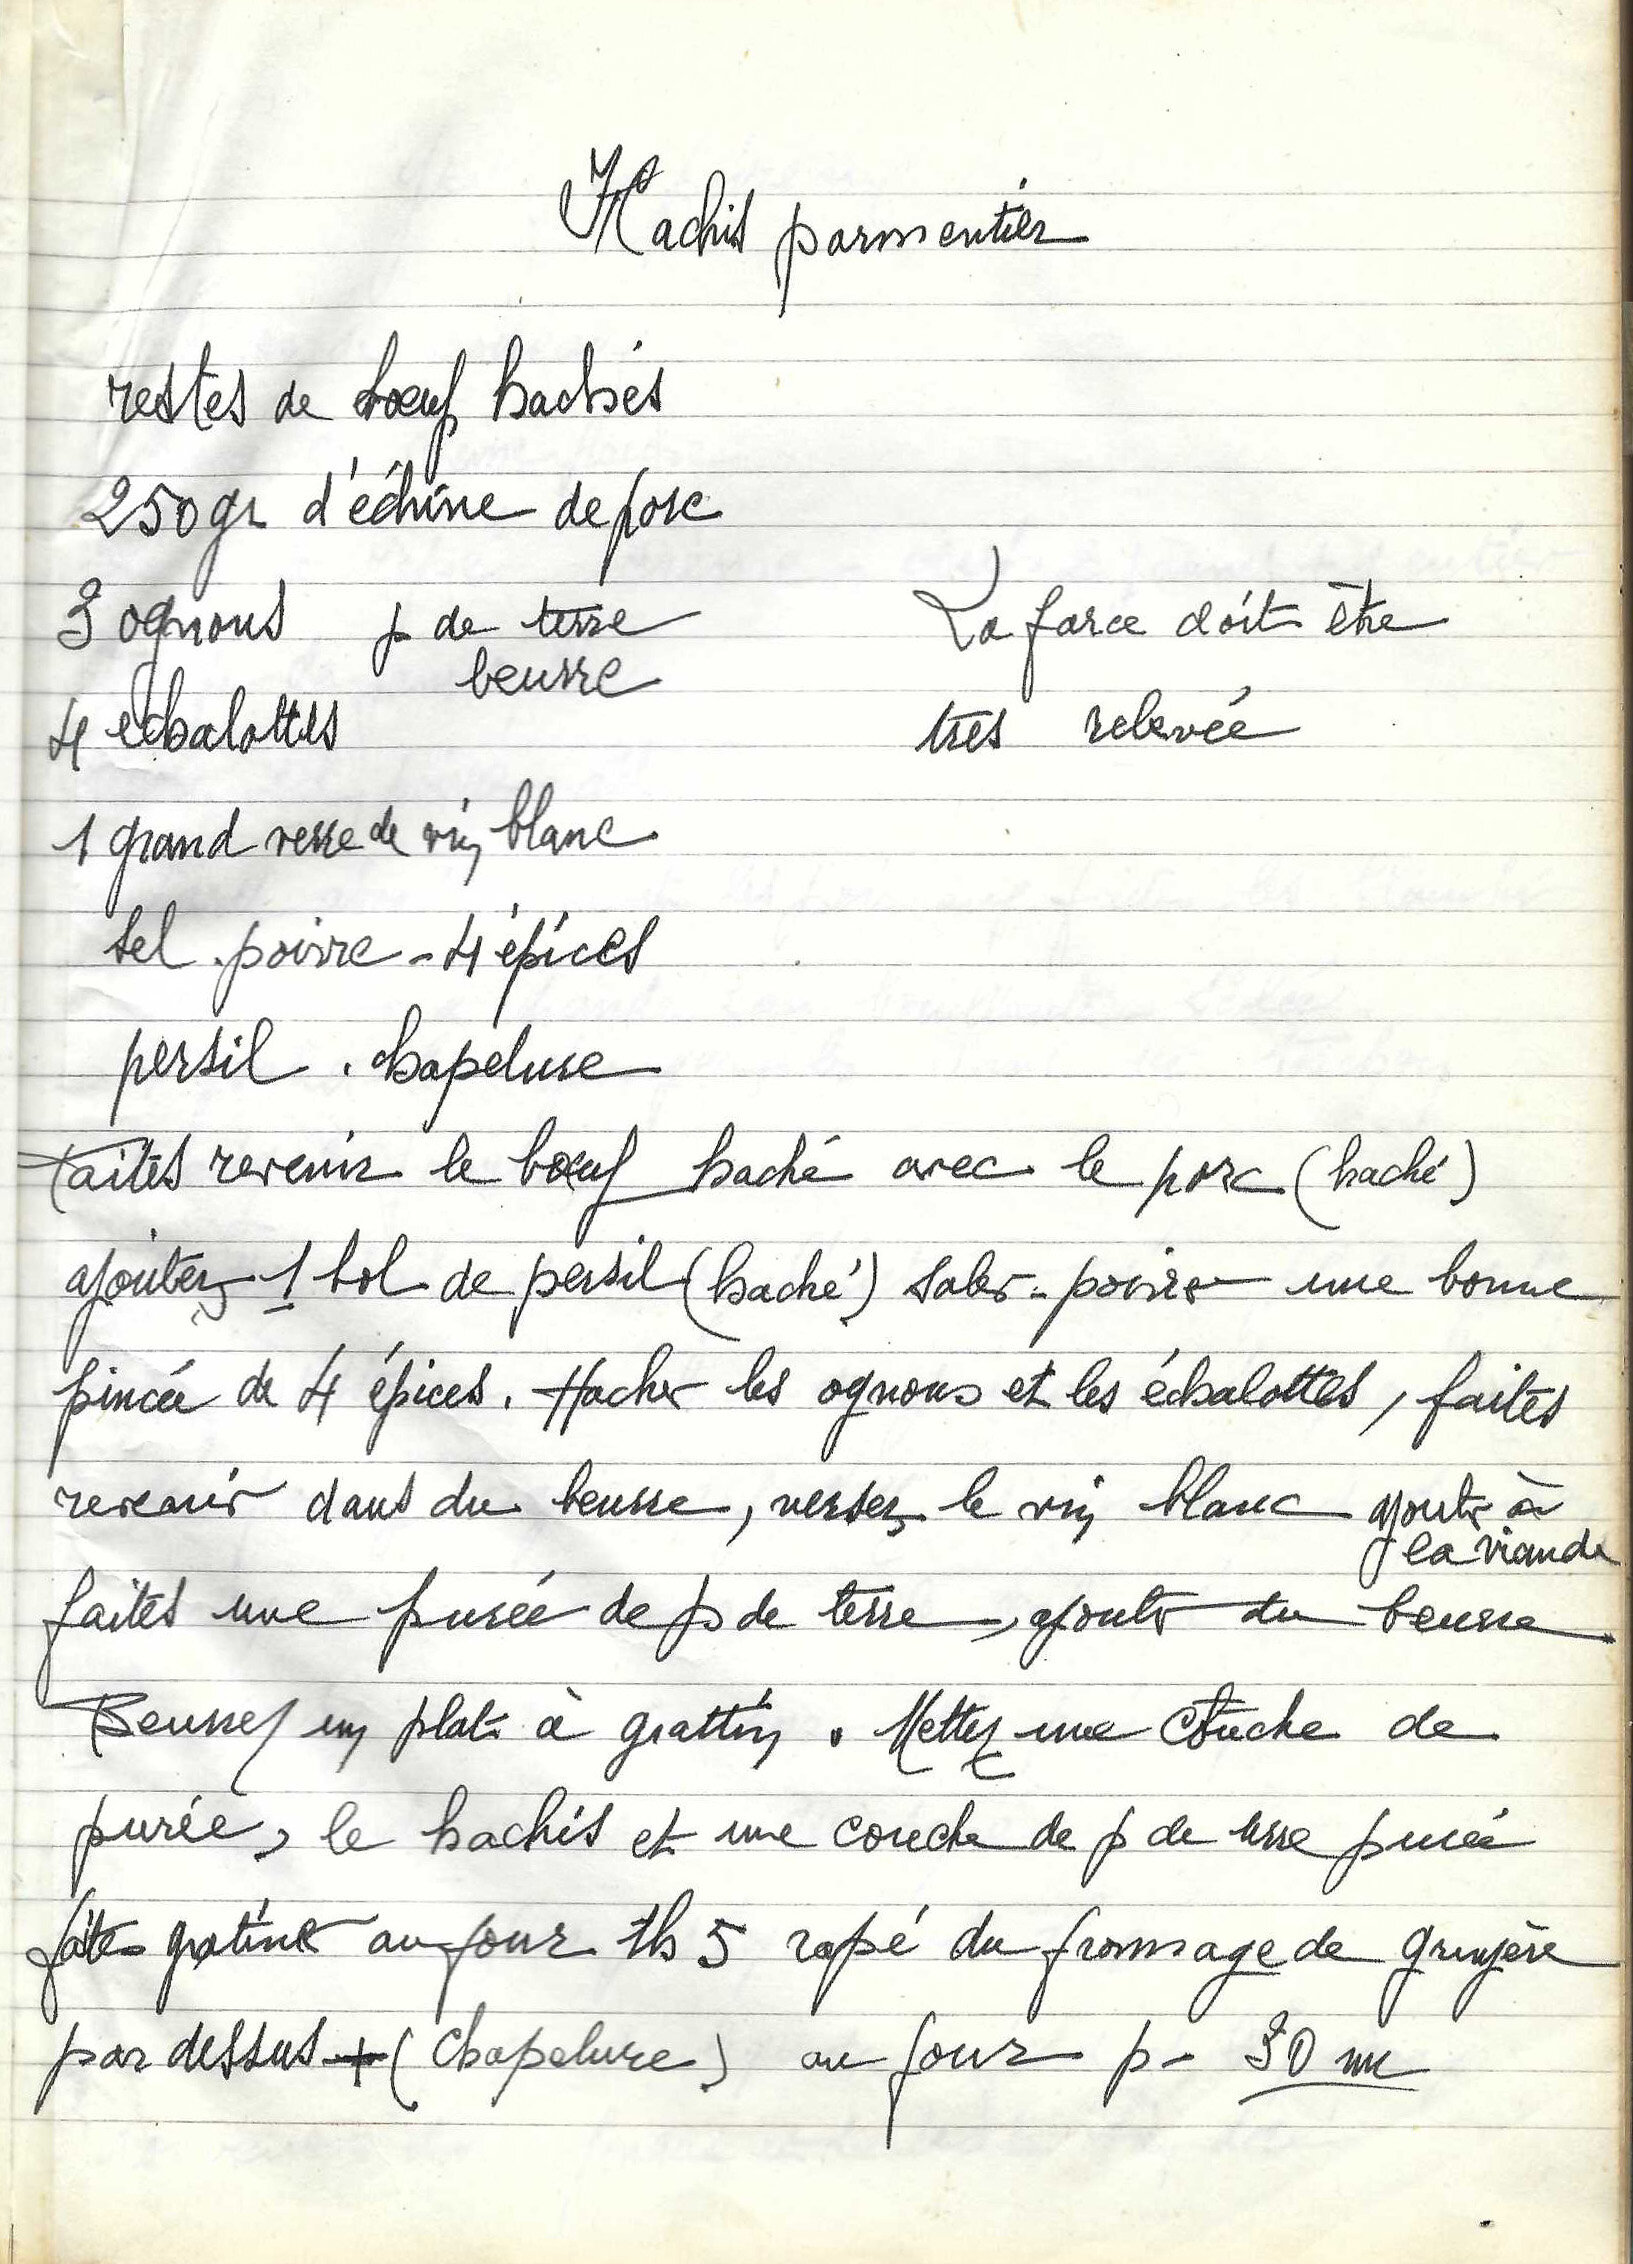 Hachis parmentier
restes de boeuf hachés
250gr d'échine de porc
3 ognons p de terre
beurre
4 échalottes
La farce doit être
très relevée
1 grand verre de vin blanc
sel . poivre - 4 épices
persil . chapelure
Faites revenir le boeuf haché avec le porc (haché)
ajoutez 1 bol de persil (haché) saler - poivrer une bonne
pincée de 4 épices. Hacher les ognons et les échalottes, faites
revenir dans du beurre, versez le vin blanc ajouter à
la viande
faites une purée de p de terre, ajouter du beurre
Beurrez un plat à grattin . Mettez une couche de
purée, le hachis et une couche de p de terre purée
faites gratiner au four th 5 rapé du fromage de gruyère
par dessus + (chapelure) au four p - 30 mn